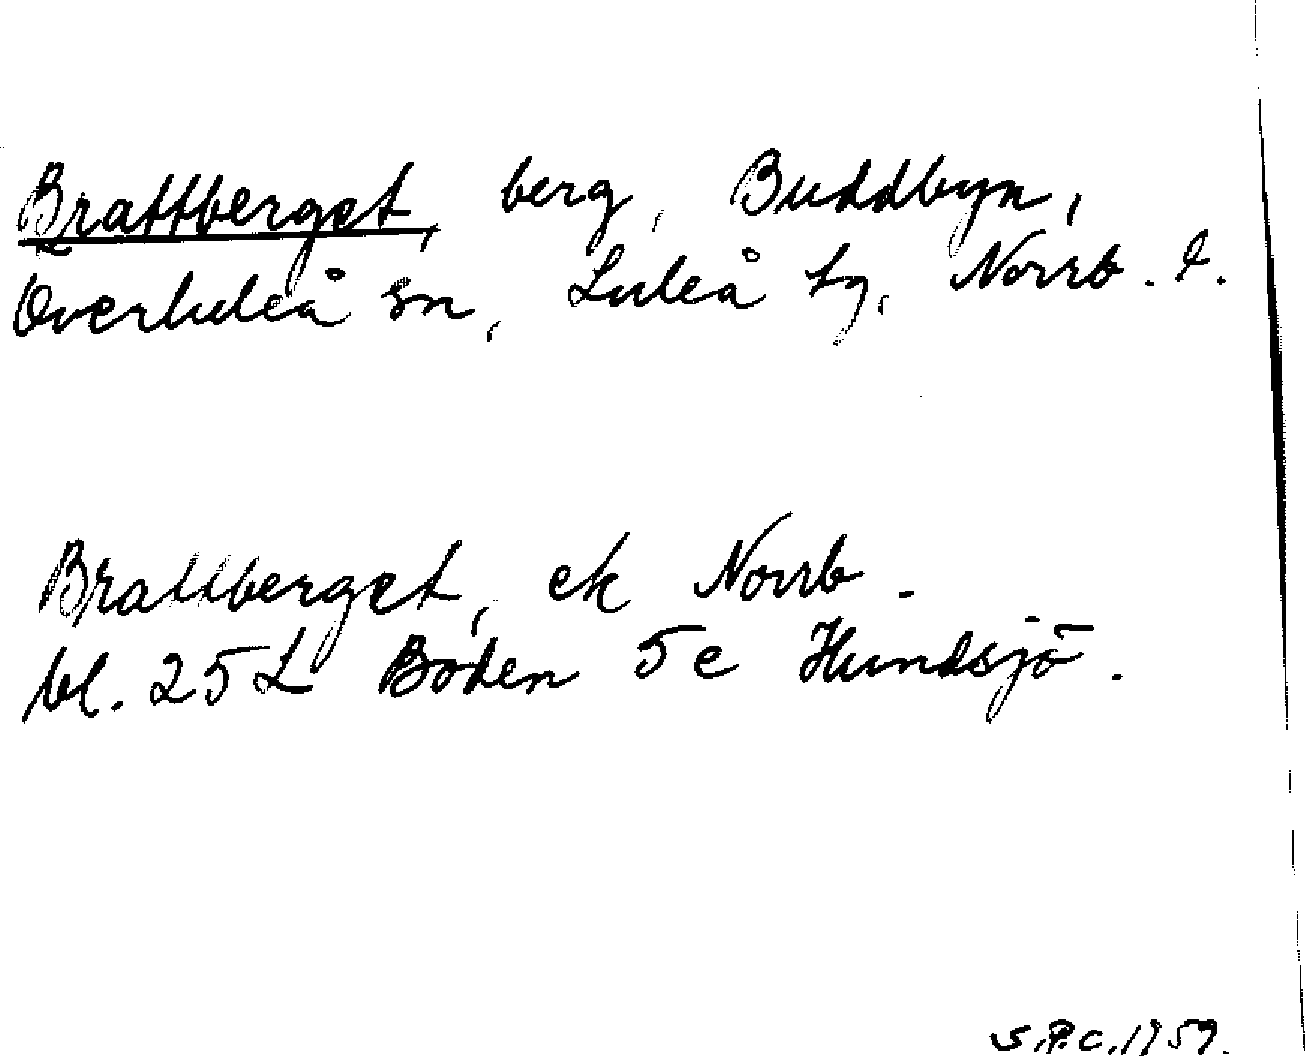 Brattberget, berg, Buddbyn,
Överluleå sn, Luleå tg, Norrb. l.
Brattberget, ek Norrb.
bl. 25L Boden 5e Hundsjö.
S.P.C. 1959.